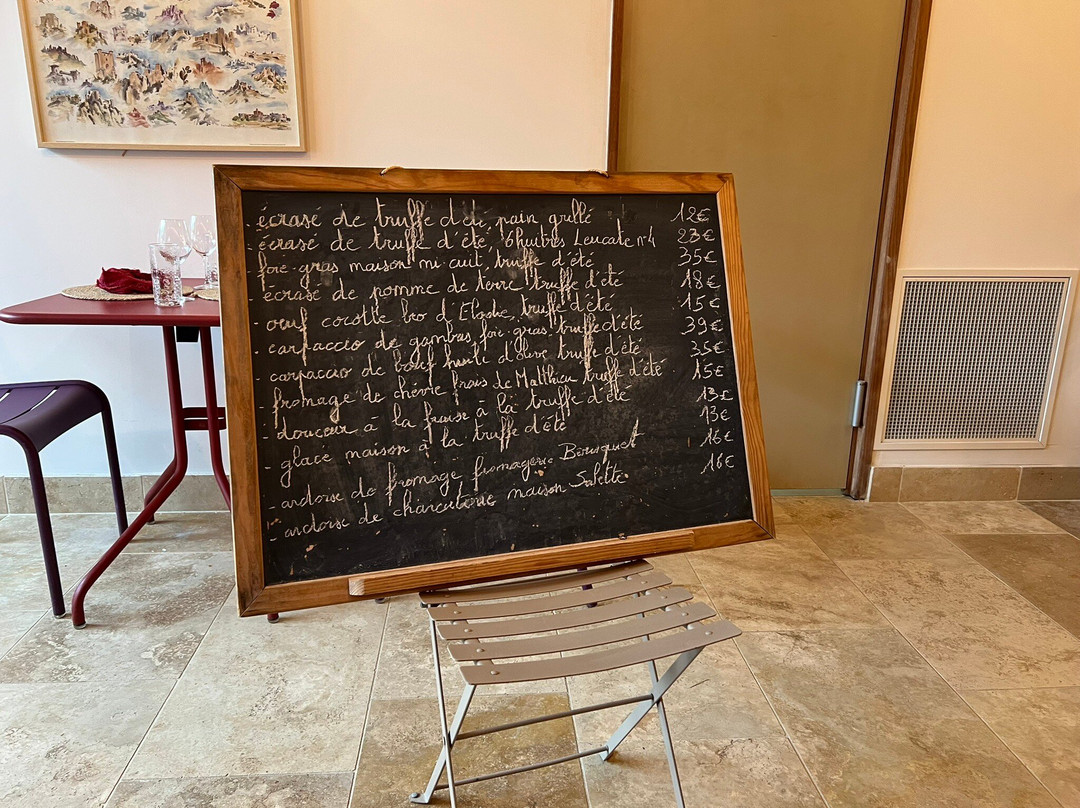 - écrasé de truffe d'été, pain grillé 12€
- écrasé de truffe d'été, 6 huitres Leucate n°4 23€
- foie-gras maison mi-cuit, truffe d'été 35€
- écrasé de pomme de terre truffe d'été 18€
- oeuf cocotte bio d'Elodie, truffe d'été 15€
- carpaccio de gambas, foie-gras, truffe d'été 39€
- carpaccio de bœuf huile d'olive truffe d'été 35€
- fromage de chèvre frais de Matthieu truffe d'été 15€
- douceur à la fraise à la truffe d'été 13€
- glace maison à la truffe d'été 13€
- ardoise de fromage fromagerie 16€
- ardoise de charcuterie maison Salette 16€